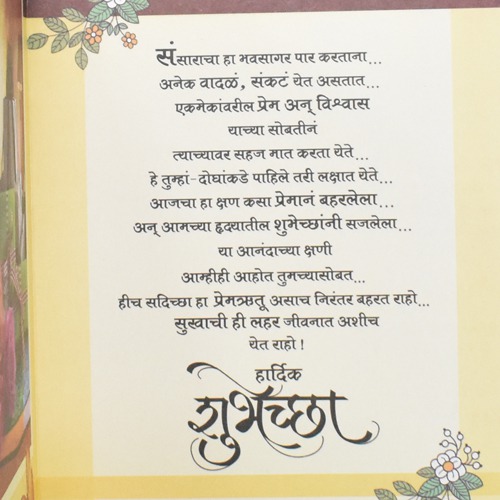 संसाराचा हा भवसागर पार करताना...
अनेक वादळं, संकटं येत असतात...
एकमेकांवरील प्रेम अन् विश्वास
याच्या सोबतीनं
त्याच्यावर सहज मात करता येते...
हे तुम्हां-दोघांकडे पाहिले तरी लक्षात येते...
आजचा हा क्षण कसा प्रेमानं बहरलेला...
अन् आमच्या हृदयातील शुभेच्छांनी सजलेला...
या आनंदाच्या क्षणी
आम्हीही आहोत तुमच्यासोबत...
हीच सदिच्छा हा प्रेमऋतू असाच निरंतर बहरत राहो...
सुखाची ही लहर जीवनात अशीच
येत राहो !
हार्दिक
शुभेच्छा